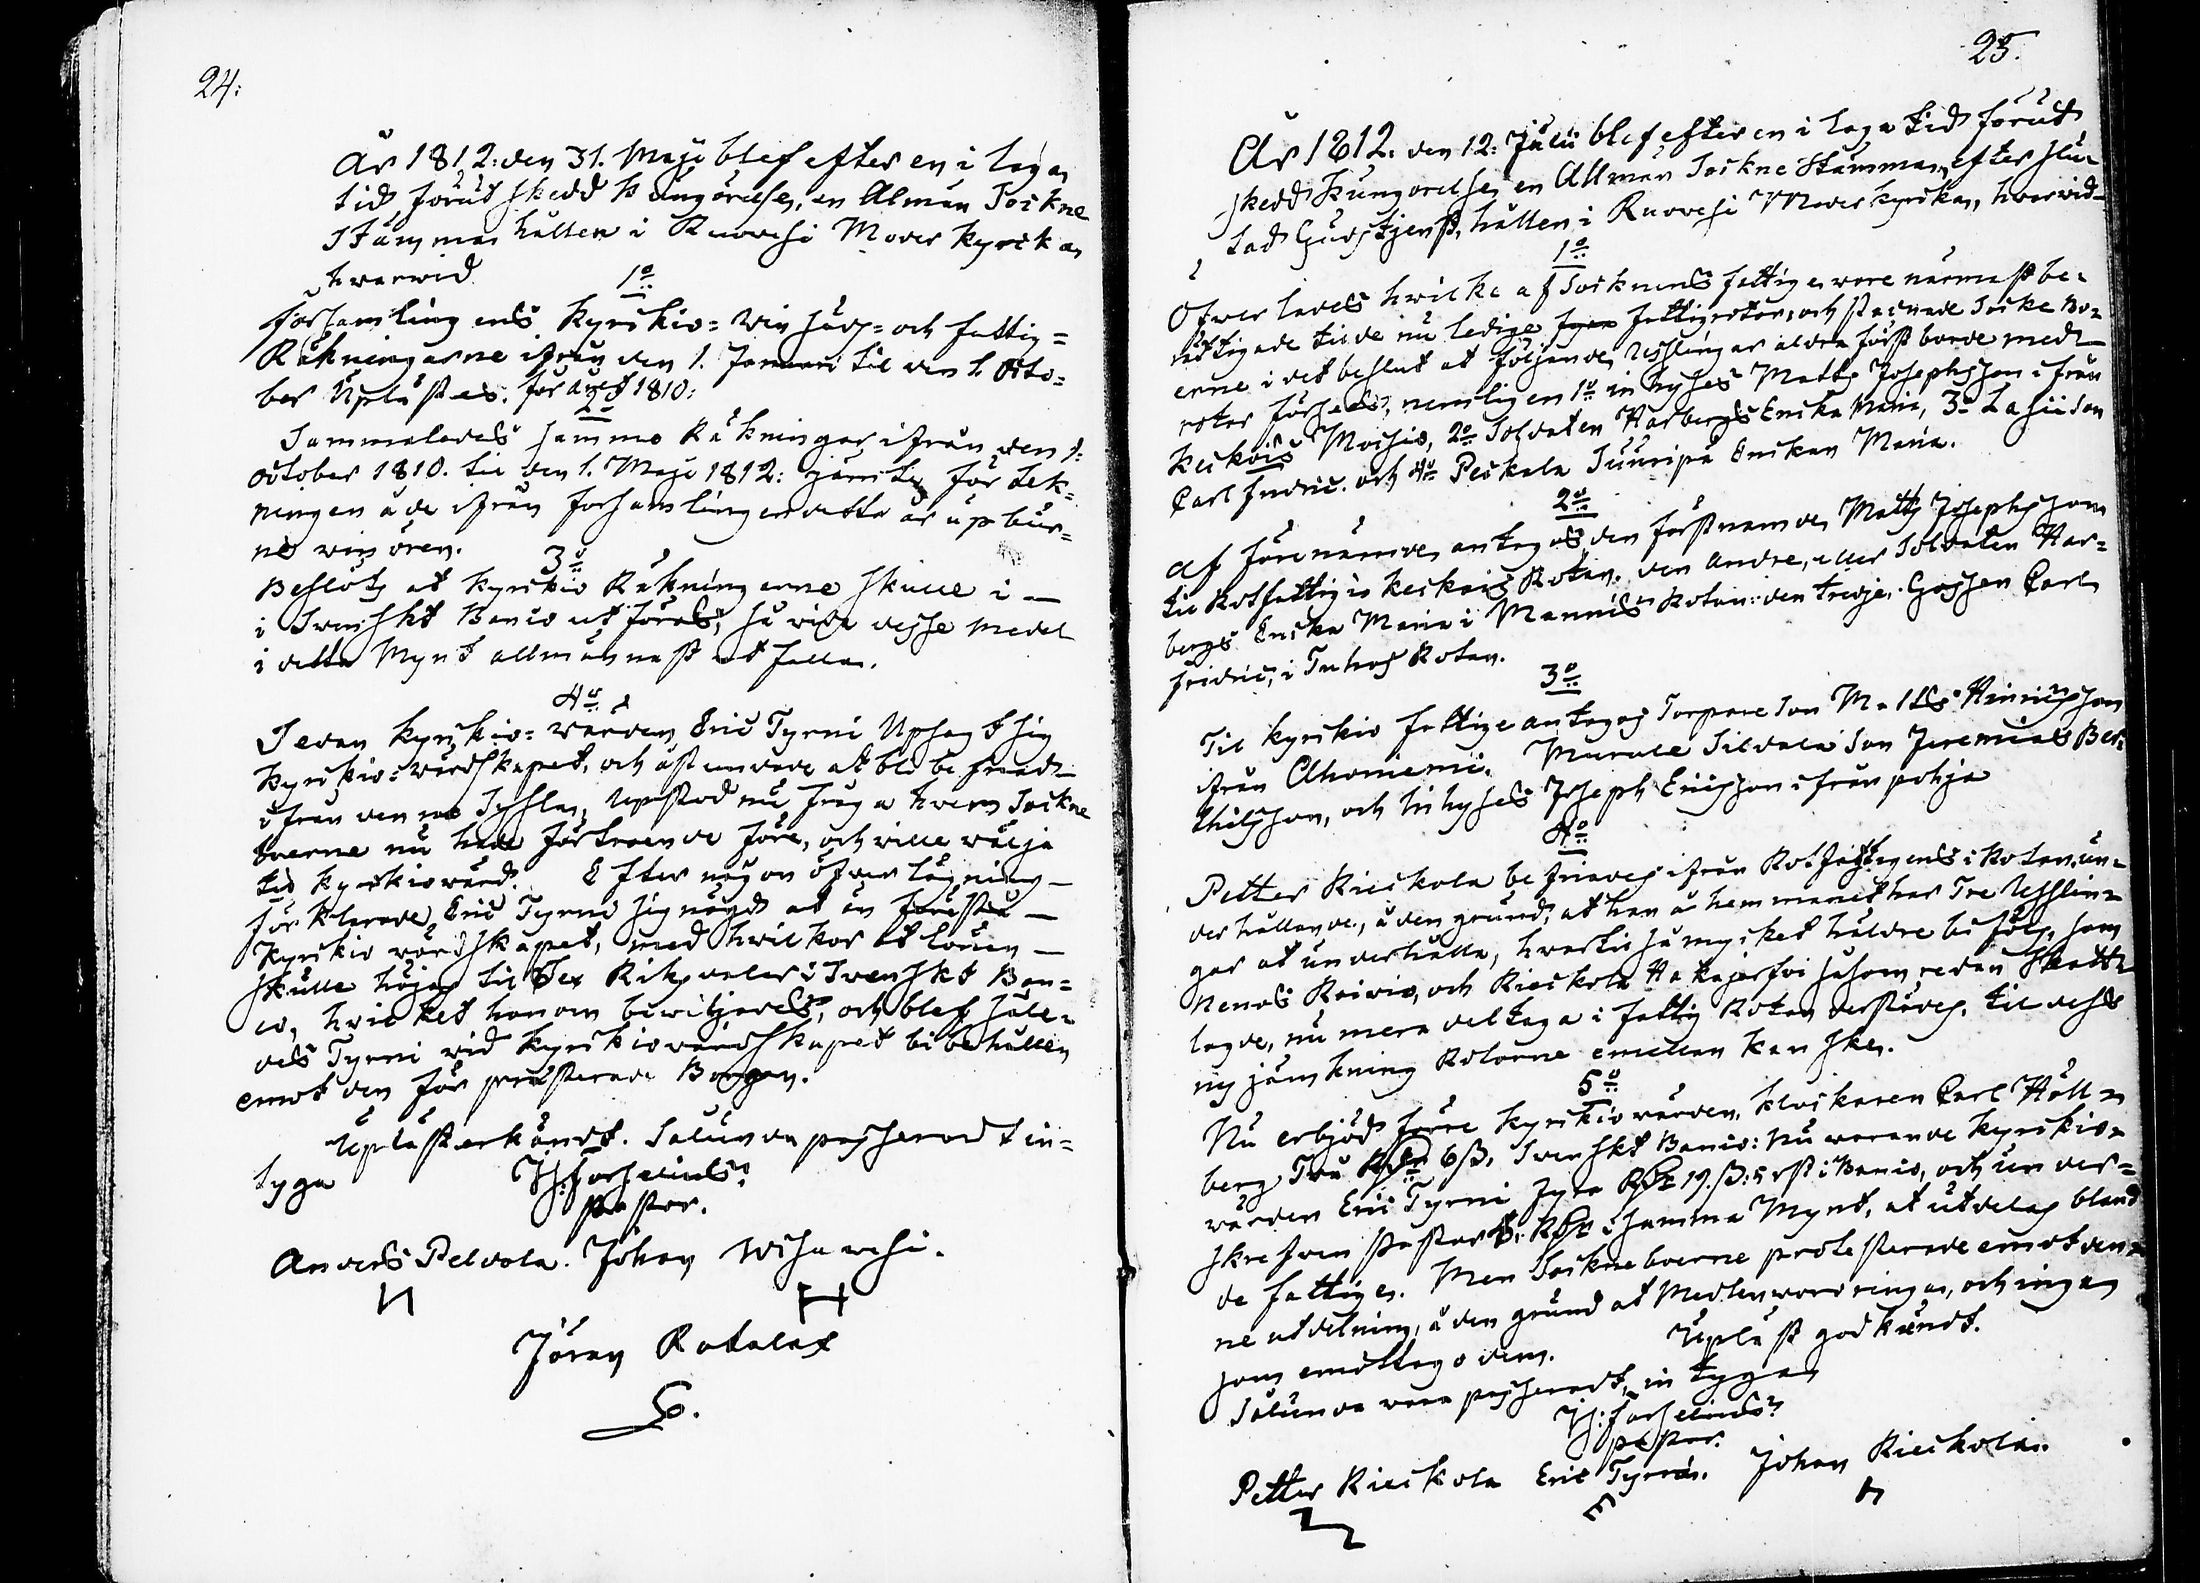 24:
År 1812: den 31. Maji blef efter en i laga
tid förut skedd kungörelse, en Alman Sockne
Stämma hållen i Ruovesi Moder kyrcka
hvarwid
1o
församlingens kyrckio= vin säds= och fattig=
Räkningarne ifrån den 1. Januari til den 1. Octo=
ber Uplästes. för året 1810:
2o
Sammaledes samma Räkningar ifrån den 1:
October 1810. til den 1. Maji 1812: jämte förtek=
ningen å de ifrån församlingen detta år upbur=
ne win ören.
3o
Beslöts at kyrckio Räkningerne skulle i
i Swenskt Banco utföras, så wida desse medel
i detta Mynt allmännast utfalla.
4o
Sedan kyrckio= wärden Eric Tyrni Upsagt sig
kyrckio=wärdskapet, och åstundade at bli befriad
ifrån denna Syssla, Upstod nu fråga hwem Sockne
boerne nu hade förtroende före, och wille wälja
til kyrckiowärd. Efter någon öfverläggning
förklarade Eric Tyrni sig nögd at än förestå
kyrckio wärdskapet, med hwilkor at lönen
skulle höjas til Sex Riksdaler i Swenskt Ban=
co, hvilket honom bewiljades, och blef såle=
des Tyrni wid kyrckiowärdskapet bibehållen
emot den för præsterade Borgen.
Upläst erkändt. Salunda passeradt in=
tyga
H: Forselius
Pastor.
Anders Peldola. Johan Wisuwesi.
Jöran Rotala
25.
År 1812. den 12: Julii blef efter en i laga tid förut
skedd kungörelse, en Allmän Sockne Stämma, efter slu=
tad Gudstjenst, hållen i Ruovesi Moder kyrcka, hvarwid
1o
Öfwerlades hwilke af Socknens fattige wore närmast be=
rättigade til de nu ledige fattigrotar, och stadnade Sockne Bo=
erne i det beslut at följande Usslingar aldra först borde med
rotar förses, nemligen 1o inhyses Matts Josephsson ifrån
Keckois Moisio, 2o Soldaten Harbergs Enka Maria, 3o
Carl Fredric. och 4o Peckala Enkan Maria.
2o
Af förenämde antogos den förstnämde Matts Josephsson
til Rotfattig i Keckois Rotan. den Andre, eller Soldaten Har=
bergs Encka Maria i Mannis Rotan: den tredje, Gossen Carl
Fridric, i Tuhos Rotan.
3o
Til kyrckio fattige antogos Torpare Son Matts Henricsson
ifrån Ahoniemi. Murole Sildala Son Jeremias Ber=
thilsson, och Inhyses Joseph Ericsson ifrån pohja
4o
Petter Rieckola befriades ifrån Rotfattigens i Rotan un=
derhållande, å den grund, at han å hemmanet har Tre Ussling=
gar at underhålla, hwartil så mycket hällre biföls, som
Nenos Roivio, och Rieckola Hakajerfvi såsom redan Skatt=
lagde, nu mera deltaga i fattig Rotan. til dess
ny jämkning Rotarne emellan kan ske.
5o
Nu erbjöd förre kyrckiowärden, klockaren Carl Häll=
berg Två Rdr 6 s, Swenskt Banco: nu warande kyrckio=
wärden Eric Tyrni fyra Rdr 19. s: 5 rst i Banco, och under=
skrefwen Pastor Rdr i samma Mynt, at utdelas bland
de fattige. Men Sockneboerne protesterade emot den=
ne utdelning, å den grund at Medlen woro ringa, och ingen
som emottogo dem. Upläst godkändt.
Salunda vara passeradt, intygas
H: Forselius
pastor.
Petter Rieckola Eric Tyrni. Johan Rieckola.